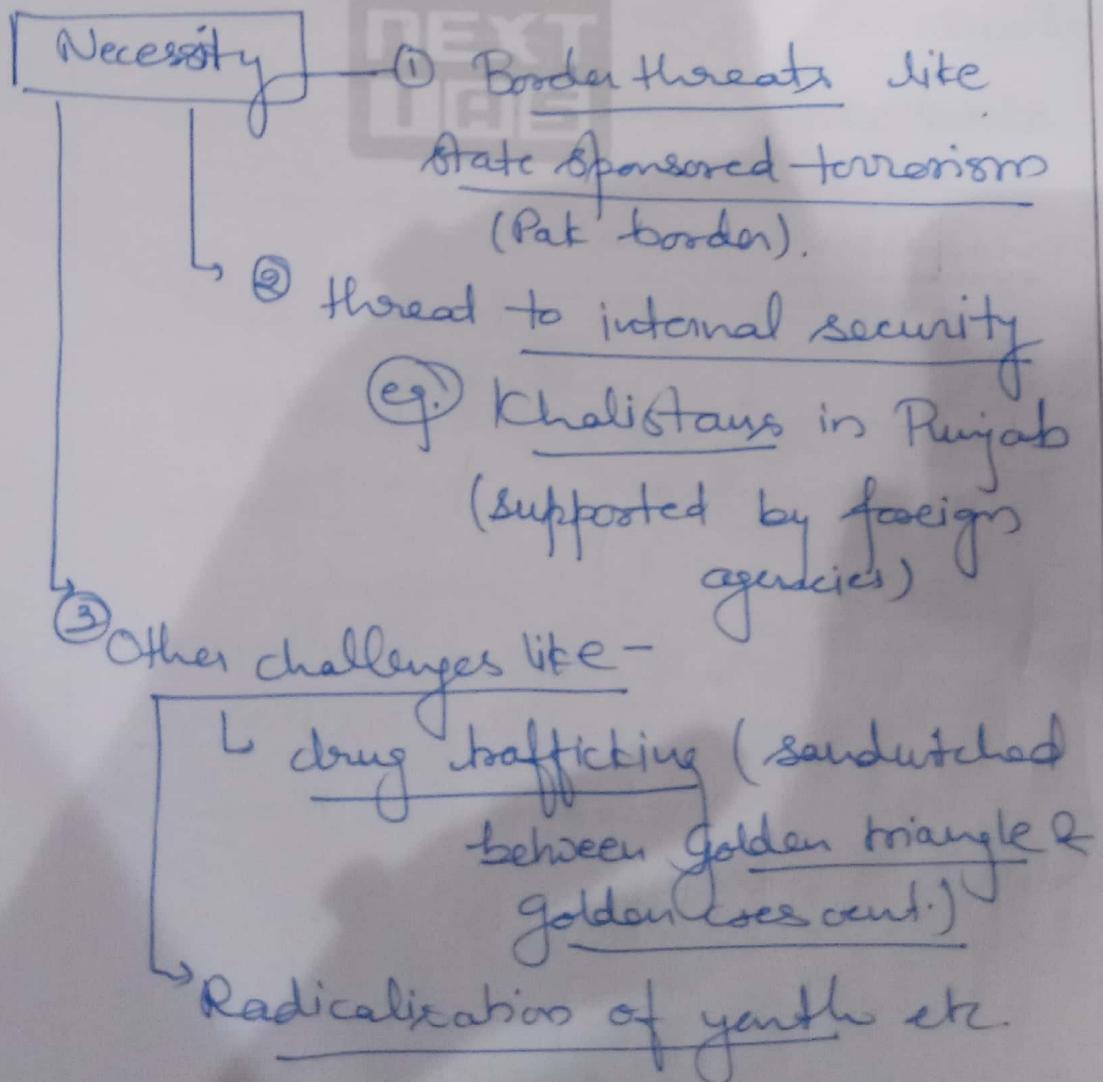 NEXT
IAS
Necessity
① Border threats like
state sponsored terrorism
(Pak border).
② thread to internal security
eg. Khalistans in Punjab
(supported by foreign
agencies)
③ Other challenges like -
drug trafficking (sandwitched
between golden triangle &
golden crescent.)
Radicalization of youth etc.